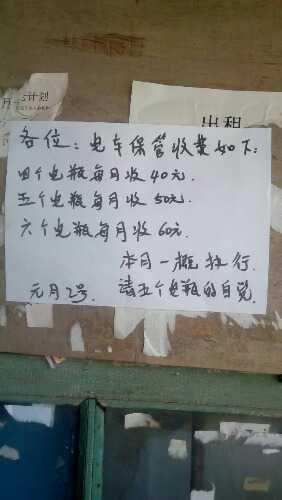 计划
出租
各位：电车保管收费如下：
四个电瓶每月收40元.
五个电瓶每月收50元.
六个电瓶每月收60元.
本月一概执行.
元月2号. 请五个电瓶的自觉.